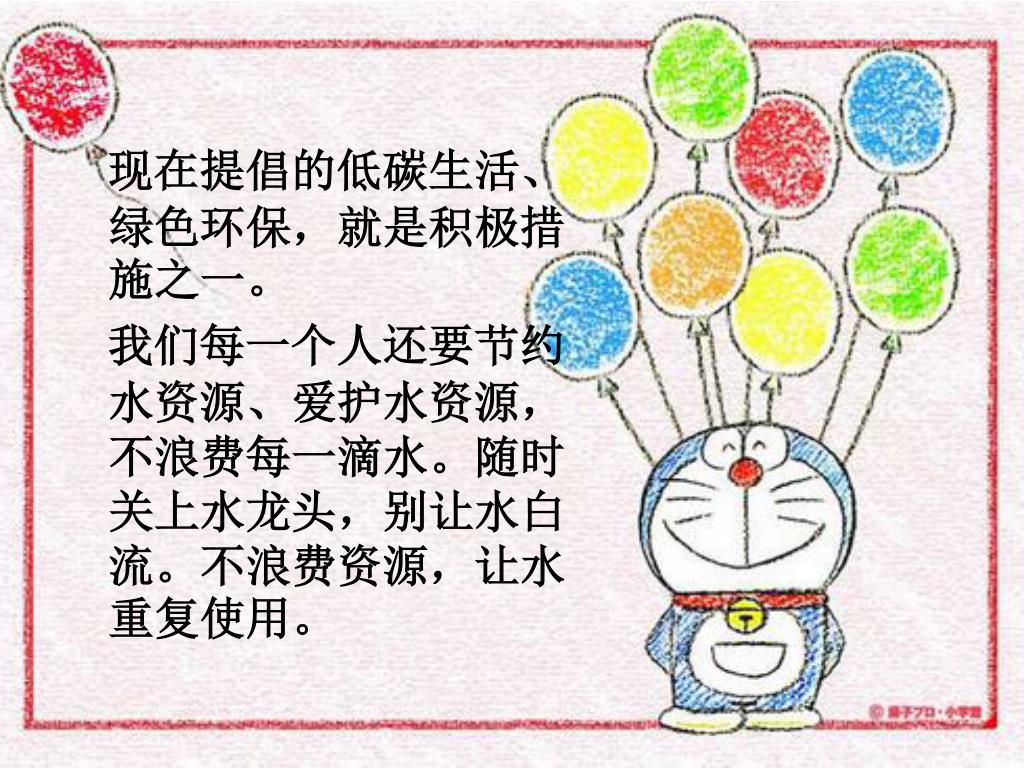 现在提倡的低碳生活、
绿色环保，就是积极措
施之一。
我们每一个人还要节约
水资源、爱护水资源，
不浪费每一滴水。随时
关上水龙头，别让水白
流。不浪费资源，让水
重复使用。
©藤子プロ・小学館